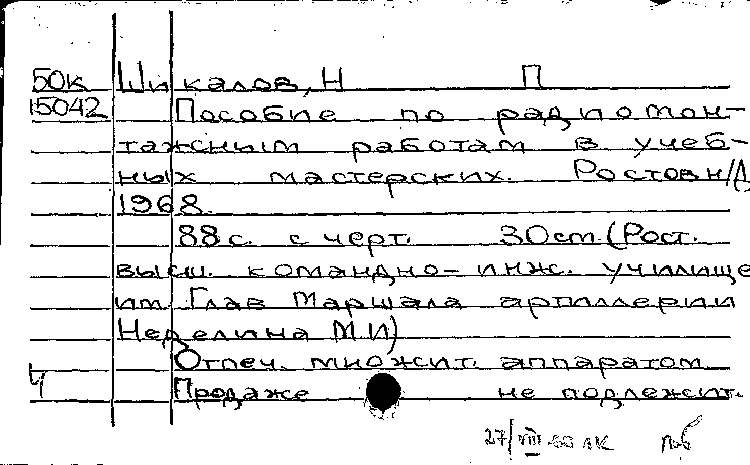 50к Шикалов, Н П
15042 Пособие по радиомон-
тажным работам в учеб-
ных мастерских. Ростов н/Д
1968.
88 с. с черт. 30 cm. (Рост.
высш. командно-инж. училище
им. Глав Маршала артиллерии
Неделина М.И)
Отпеч. множит. аппаратом
Ч Продаже не подлежит.
27/VIII